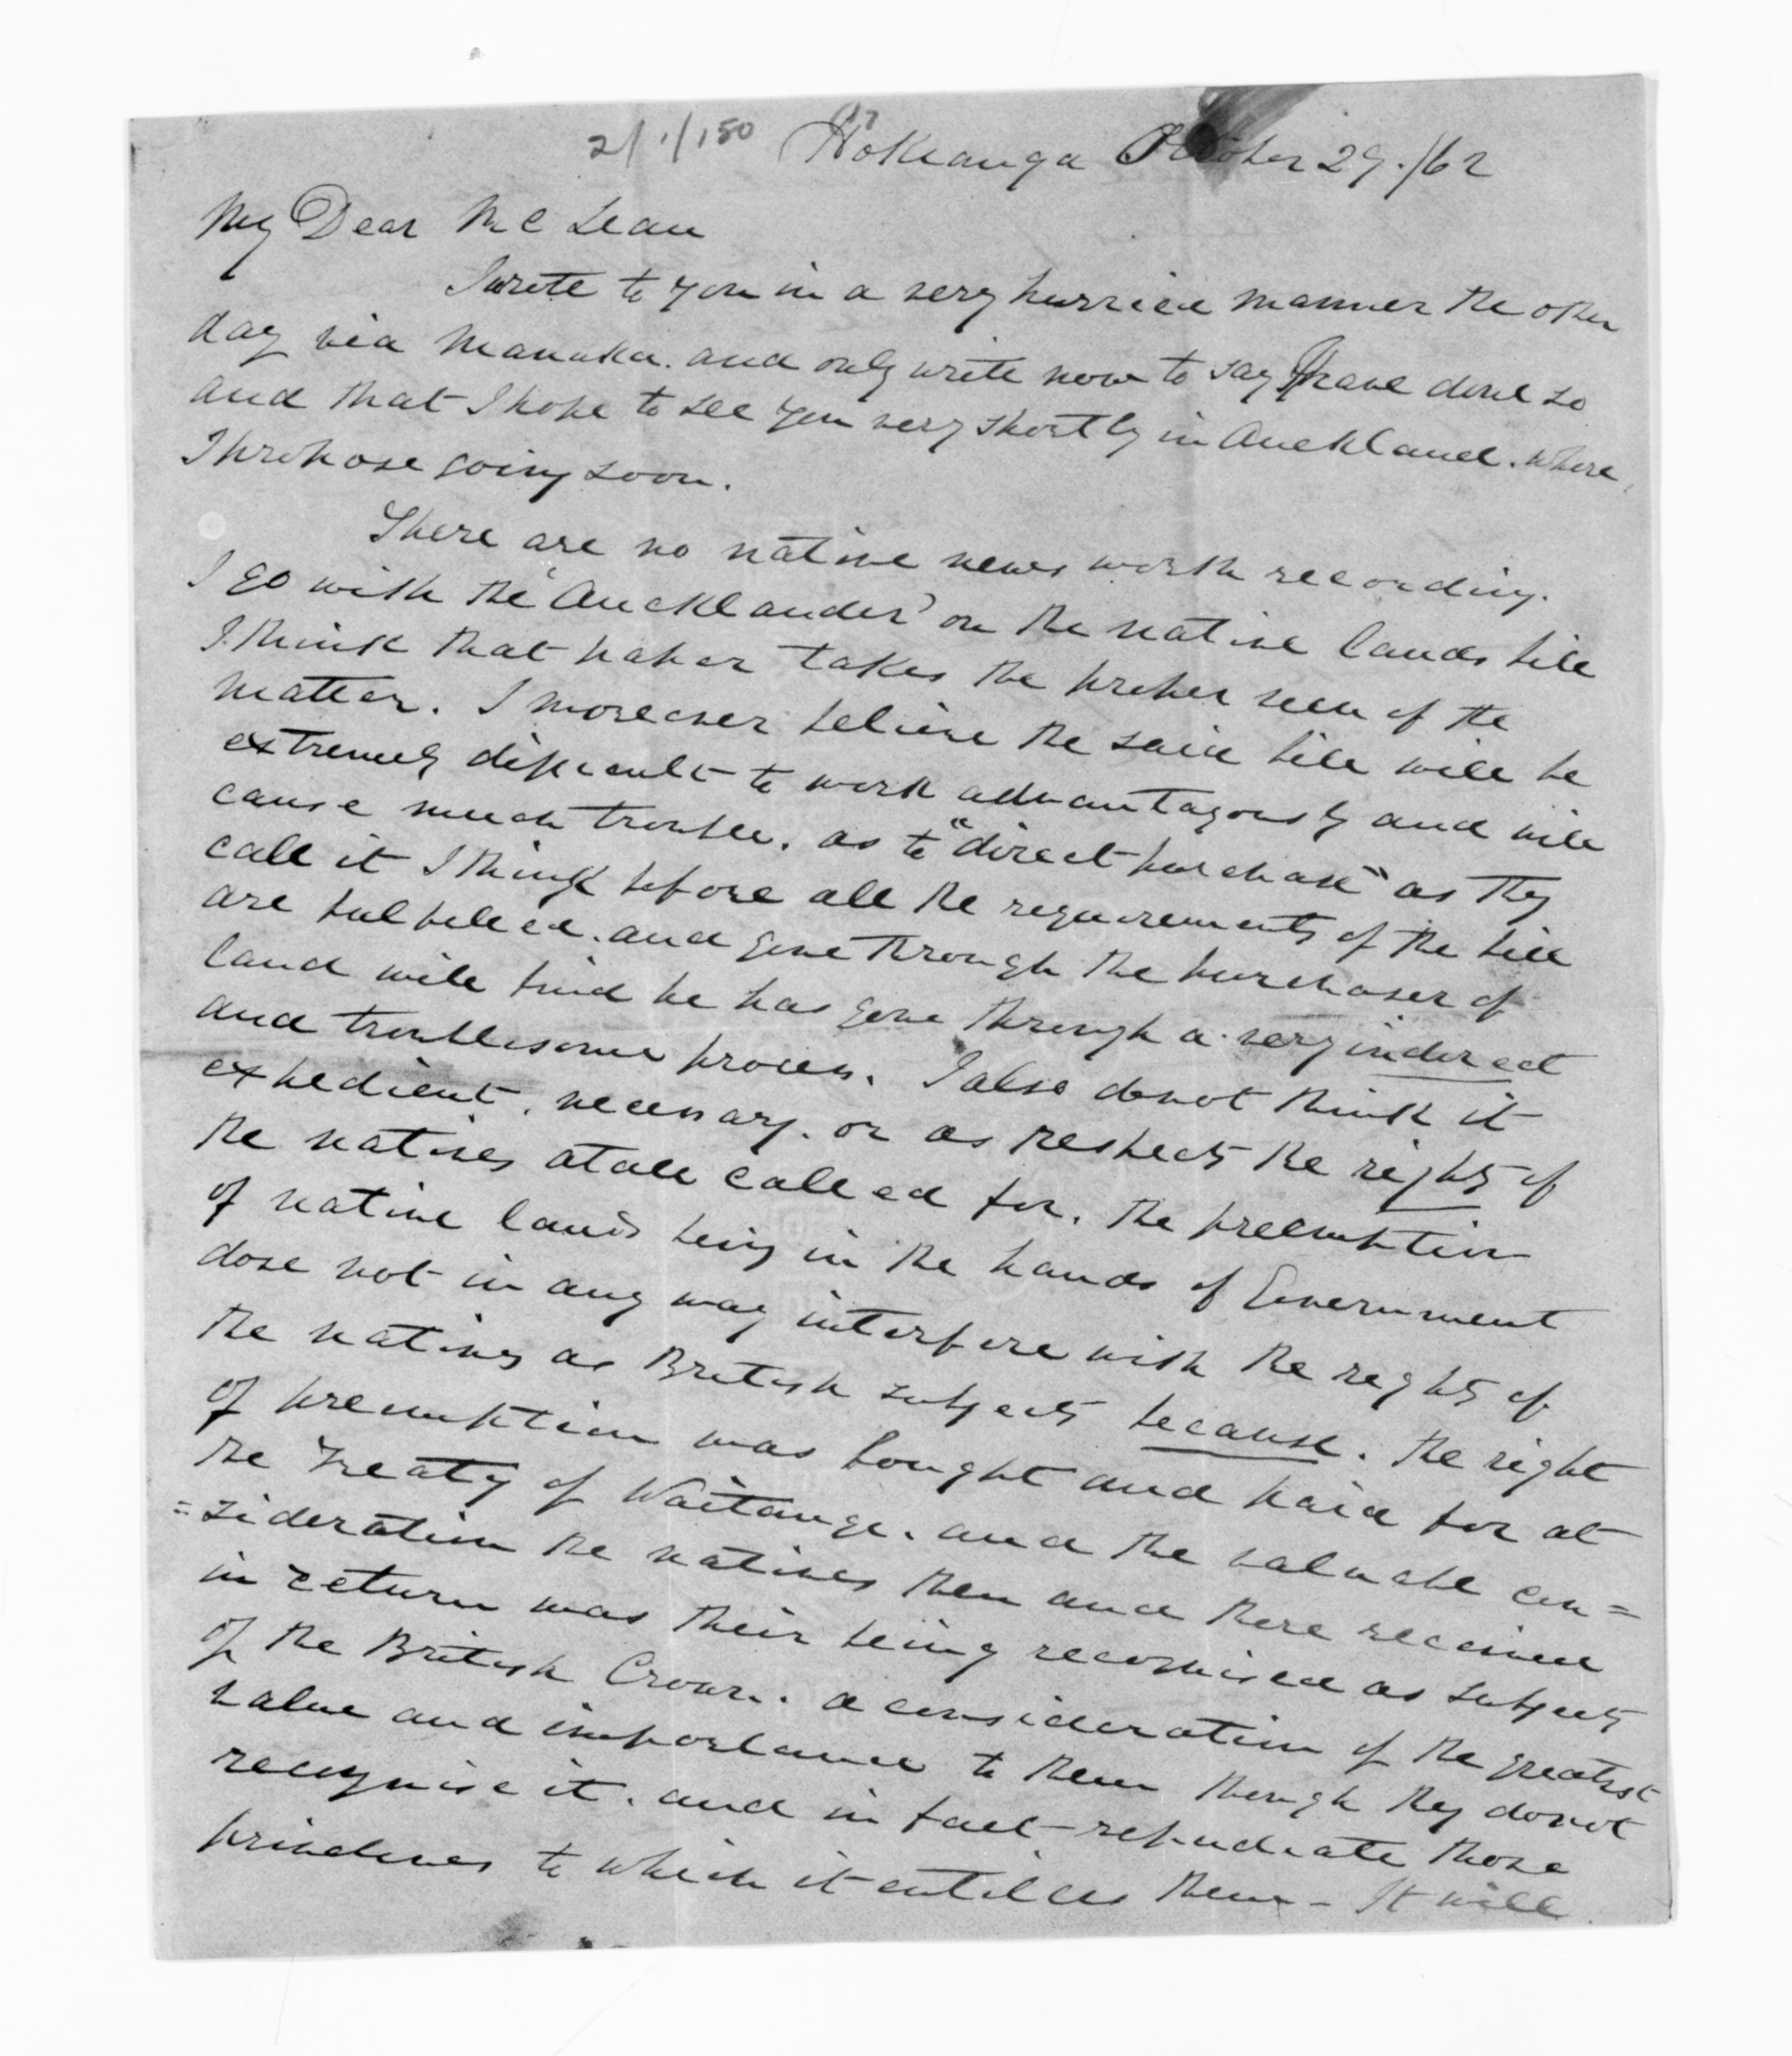 2/1/150 Hokianga October 29./62
My Dear McLean
I wrote to you in a very hurried manner the other
day via Manuka. and only write now to say I have done so
and that I hope to see you very shortly in Auckland. where
I propose going soon.
There are no native news worth recording.
I go with the 'Aucklander' on the native lands bill
I think that paper takes the proper view of the
matter. I moreover believe the said bill will be
extremely difficult to work advantagously and will
cause much trouble. as to "direct purchase" as they
call it I think before all the requirements of the bill
are fulfilled. and gone through the purchaser of
land will find he has gone through a very indirect
and troublesome process. I also donot think it
expedient. necessary. or as respects the rights of
the natives atall called for. the preemption
of native lands being in the hands of Government
dose not in any way interfere with the rights of
the natives as British subjects because. the right
of preemption was bought and paid for at
the Treaty of Waitangi. and the valuable con=
=sideration the natives then and there received
in return was their being recognised as subjects
of the British Crown. a consideration of the greatest
value and importance to them though they donot
recognise it. and in fact repudiate those
to which it entitles them - It will